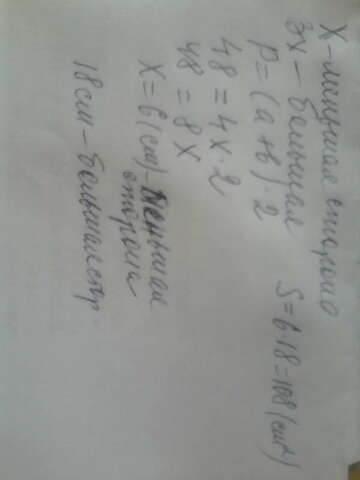 X - меньшая сторона
3x - большая
P = (a+b)·2
48 = 4x·2
48 = 8x
X = 6 (см) - меньшая
сторона
18 см - большая стор.
S = 6·18 = 108 (см²)